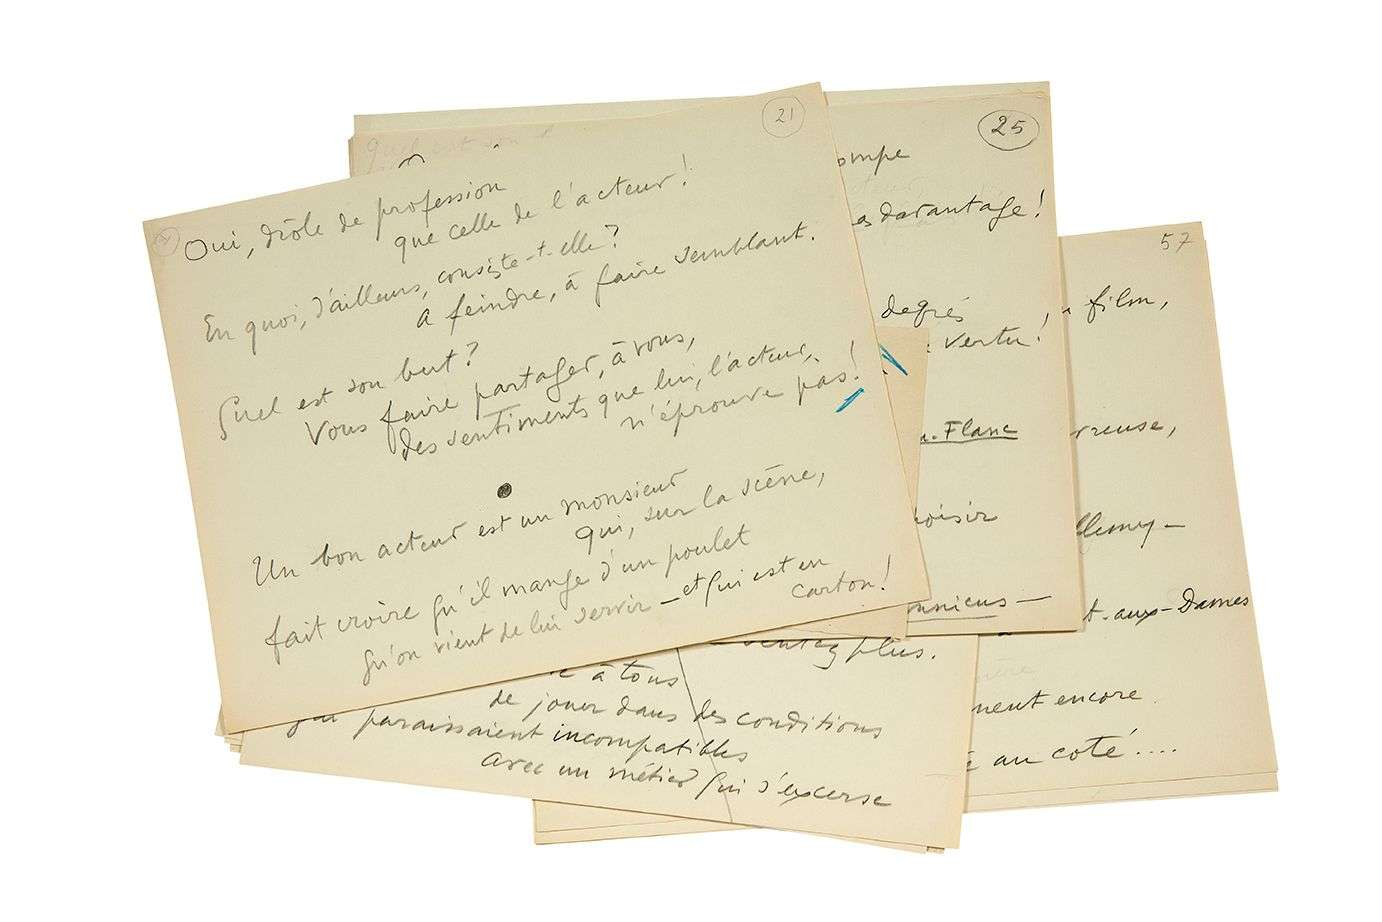 21
Oui, drôle de profession
que celle de l'acteur!
En quoi, d'ailleurs, consiste-t-elle?
A feindre, à faire semblant.
Quel est son but?
Vous faire partager, à vous,
des sentiments que lui, l'acteur,
n'éprouve pas!
Un bon acteur est un monsieur
qui, sur la scène,
fait croire qu'il mange d'un poulet
qu'on vient de lui servir — et qui est en
carton!
25
davantage!
degrés
vertu!
Flanc
57
film,
t-aux-Dames
encore
au coté....
plus.
à tous
de jouer dans des conditions
qui paraissaient incompatibles
avec un métier qui s'exerce